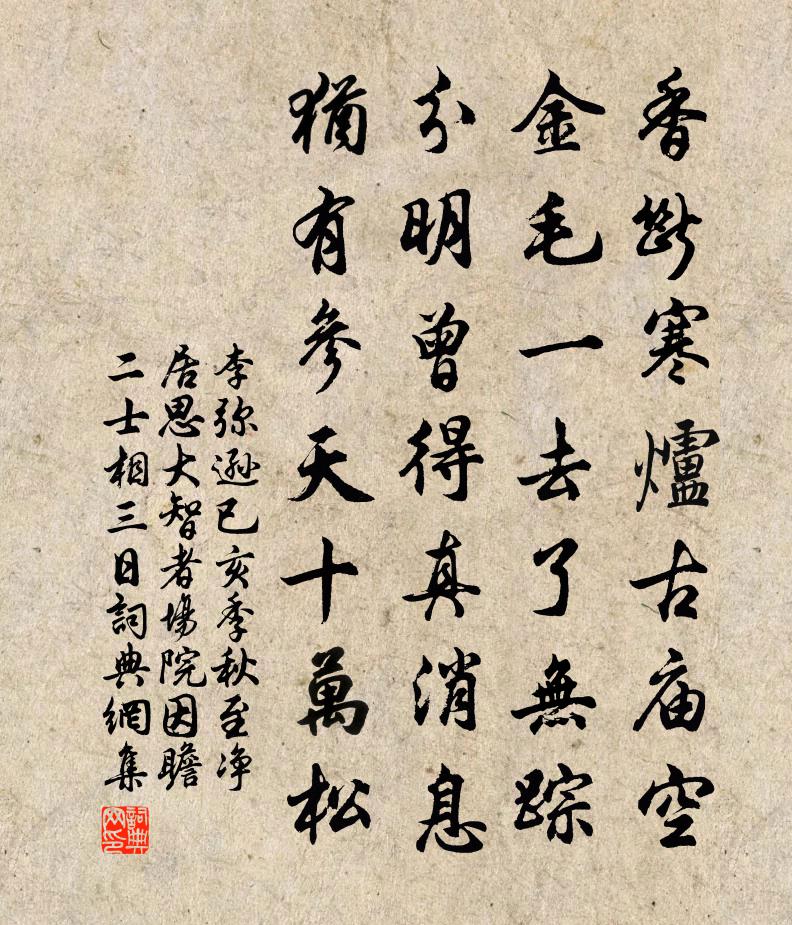 香斷寒爐古庙空
金毛一去了無踪
分明曾得真消息
猶有參天十萬松
李弥遜已亥季秋至净
居思大智者塲院因瞻
二士相三日詞典網集
詞典
网印